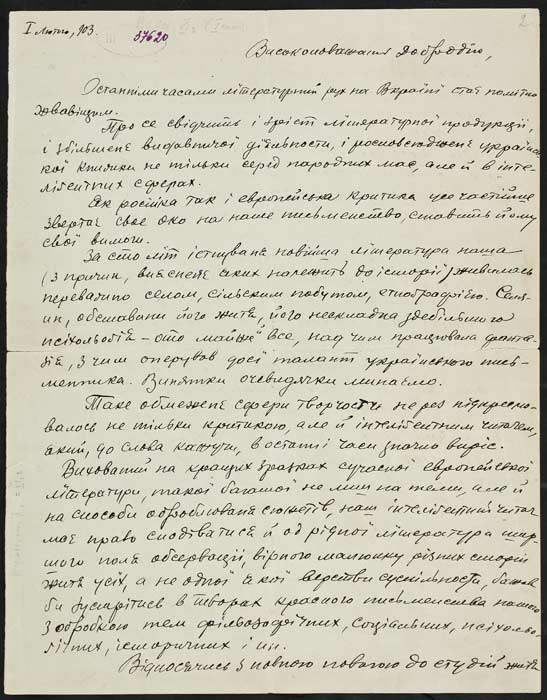 I лютого, 903.
57620
2
Високоповажаний Добродію,
Останніми часами літературний рух на Вкраїні став помітно
жвавішим.
Про се свідчить і зріст літературної продукції,
і збільшене видавничої діяльности, і розповсюджене україн-
ської книжки не тільки серед народних мас, але й в інте-
лігентних сферах.
Як російска так і европейська критика усе частійше
звертає своє око на наше письменство, ставить йому
свої вимоги.
За сто літ існуванє новійша література наша
(з причин, виясненє яких належить до історії) живилась
переважно селом, сільским побутом, етноґрафією. Селя-
нин, обставини його житя, його нескладна здебільшого
психольоґія – ото майже й все, над чим працювала фанта-
зія, з чим оперував досі талант українського пись-
менника. Винятки очевидячки минаємо.
Таке обмеженє сфери творчости не раз підкресло-
валось не тільки критикою, але й інтеліґентним читачем,
який, до слова кажучи, в останні часи значно виріс.
Вихований на кращих зразках сучасної европейскої
літератури, такої багатої не лиш на теми, але й
на способи оброблюваня сюжетів, наш інтеліґентний читач
має право сподіватися й од рідної літератури шир-
шого поля обсервації, вірного малюнку ріжних сторін
житя усіх, а не одної якої верстви суспільности, бажав
би зустрітись в творах красного письменства нашого
з обробкою тем фільозофічних, соціальних, психольо-
ґічних, історичних і ин.
Відносячись з повною повагою до студій житя